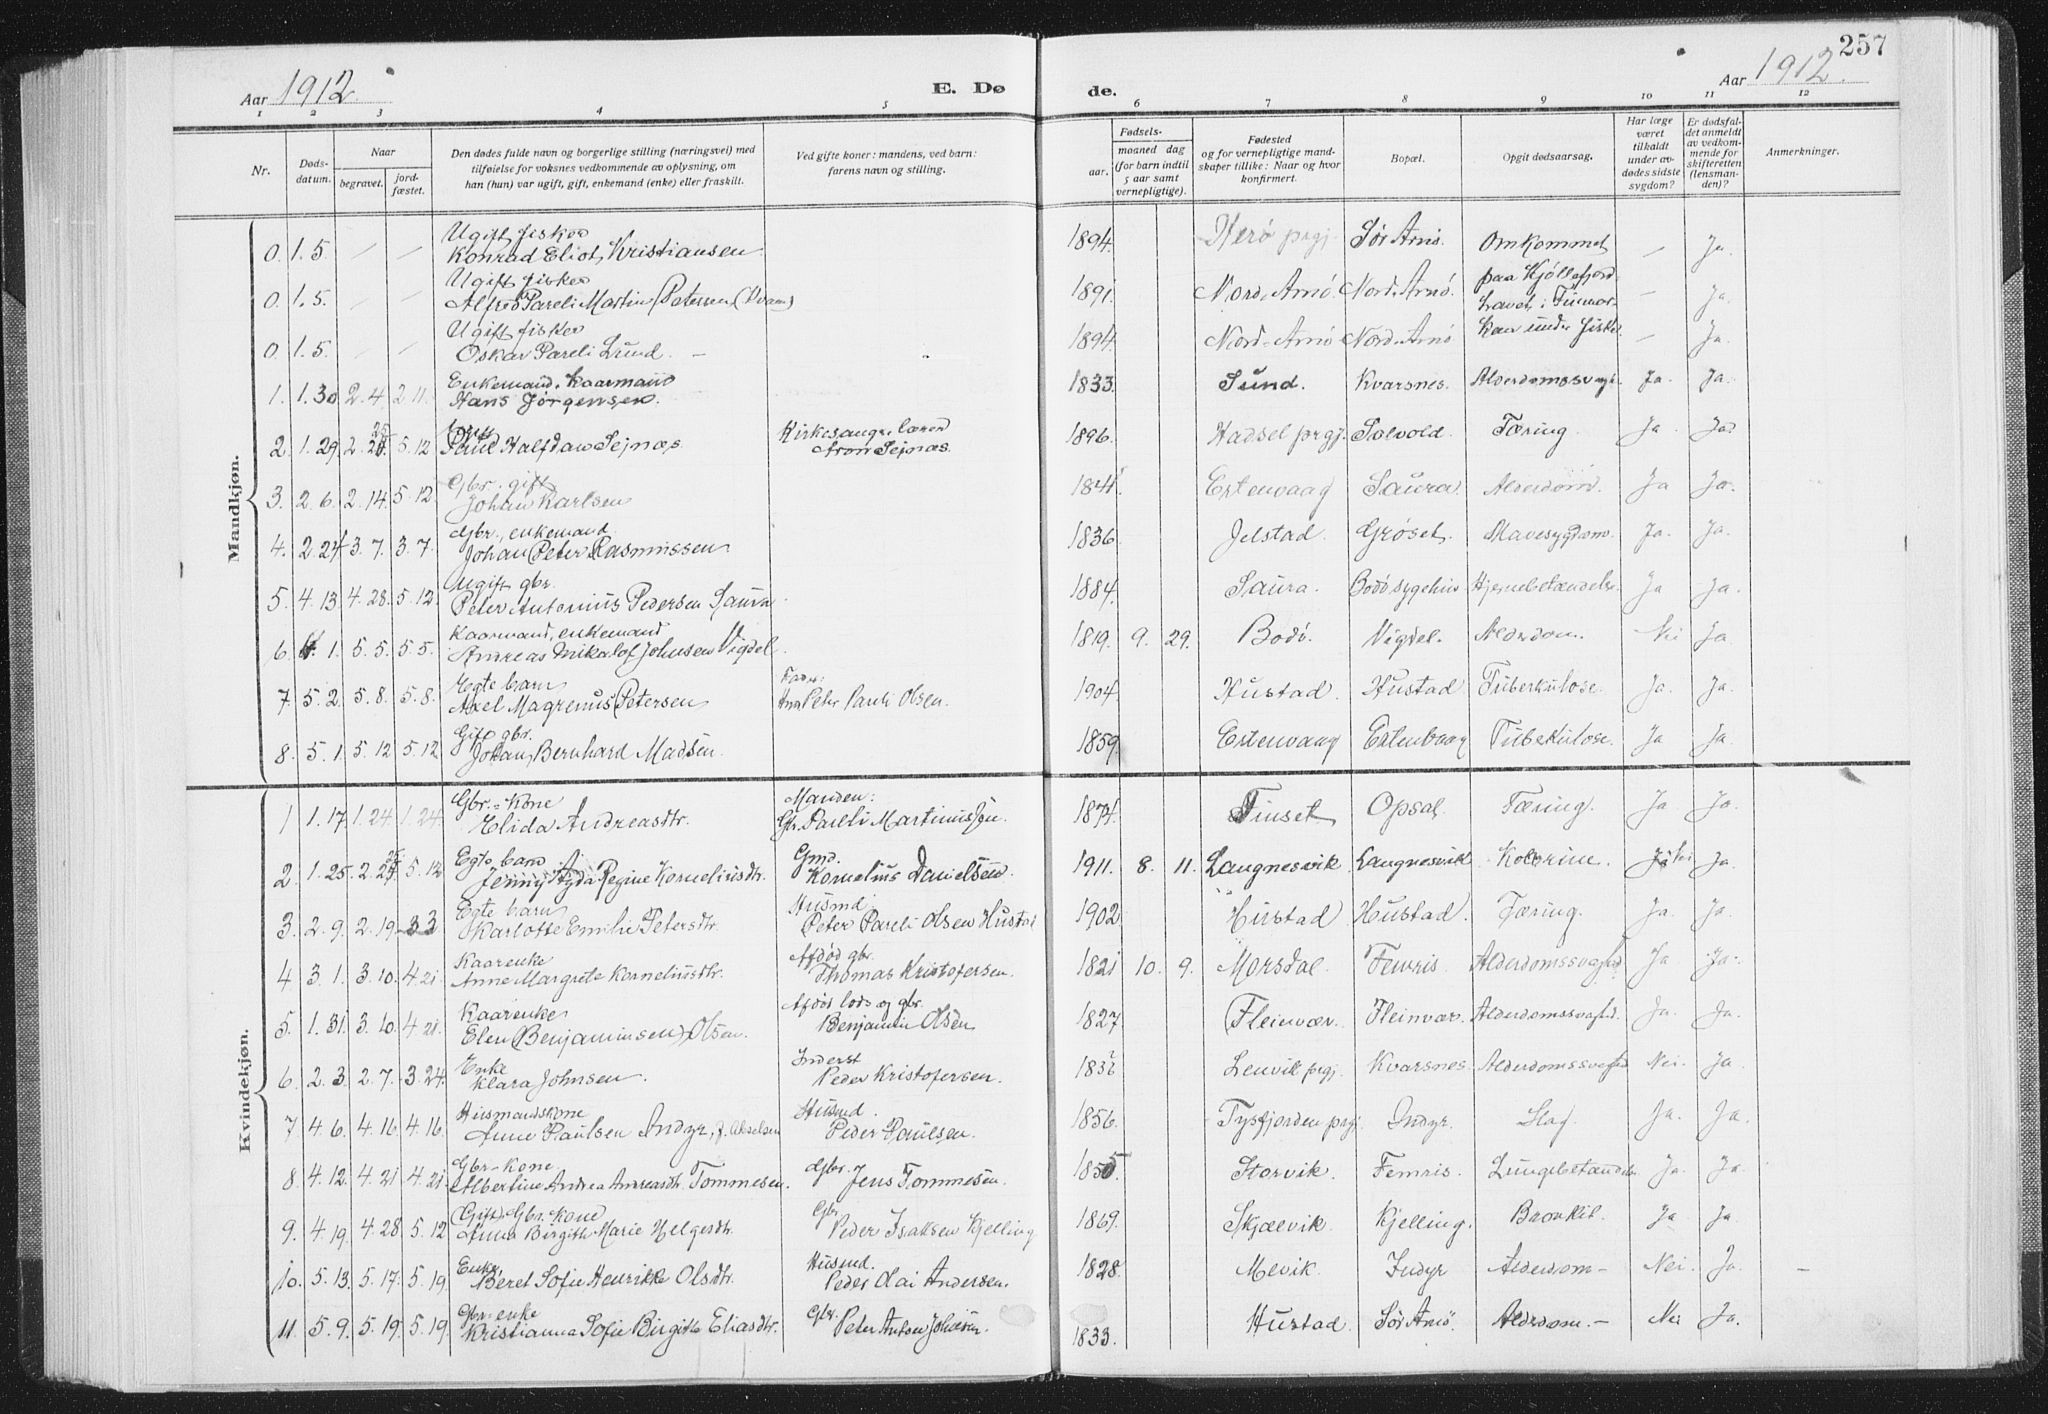 257
Aar 1912.
E. Døde.
Aar 1912.
1 2 3 4 5 6 7 8 9 10 11 12
Nr.
Døds-datum.
Naar
begravet.
jord-fæstet.
Den dødes fulde navn og borgerlige stilling (næringsvei) med
tilføielse for voksnes vedkommende av oplysning, om
han (hun) var ugift, gift, enkemand (enke) eller fraskilt.
Ved gifte koner: mandens, ved barn:
farens navn og stilling.
Fødsels-
aar. maaned dag
(for barn indtil
5 aar samt
vernepligtige).
Fødested
og for vernepligtige mand-
skaper tillike: Naar og hvor
konfirmert.
Bopæl.
Opgit dødsaarsag.
Har læge
været
tilkaldt
under av-
dødes sidste
sygdom?
Er dødsfal-
det anmeldt
av vedkom-
mende for
skifteretten
(lensman-
den)?
Anmerkninger.
Mandkjøn.
Ugift fisker
0. 1. 5. — — Konrad Eliot Kristiansen 1894. Herö prgj. Sör Arnö. Omkommet — Ja.
Ugift fisker
0. 1. 5. — — Alfred Pareli Martin Petersen (Kvam) 1891. Nord-Arnö. Nord-Arnö. paa Kjöllefjord havet i Finmar- — Ja
Ugift fisker
0. 1. 5. — — Oskar Pareli Lund. — 1894. Nord-Arnö Nord-Arnö ken under fiske — Ja.
Enkemand, kaarmand
1. 1. 30 2. 4. 2 11. Hans Jørgensen. 1833. Sund. Kvarsnes. Alderdomssvagh. Ja. Ja.
2. 1. 29. 2. 25 5. 12 Paul Halfdan Sejnæs Kirkesanger, lærer Aron Sejnæs. 1896. Hadsel prgj. Solvold. Tæring. Ja Ja.
Gbr. gift
3. 2. 6. 2. 14. 5. 12. Johan Karlsen 1841. Estenvaag Saura. Alderdom. Ja Ja.
Gbr., enkemand.
4. 2 27 3. 7. 3. 7. Johan Peter Rasmussen 1836. Jelstad. Gröset. Mavesygdom. Ja. Ja.
Ugift gbr.
5. 4. 13. 4. 28. 5. 12. Peter Antonius Pedersen Saura 1884. Saura. Bodö sygehus Hjernebetændelse Ja Ja.
Kaarmand, enkemand
6. 4. 1. 5. 5. 5. 5. Andreas Mikal Johnsen Vigdel. 1819. 9. 29. Bodö. Vigdel. Alderdom. Nei Ja
Egte barn
7. 5. 2. 5. 8. 5. 8. Axel Magrenus Petersen Fader: Peter Pareli Olsen. 1904. Hustad. Hustad Tuberkulose. Ja. Ja
Gift gbr.
8. 5. 1. 5. 12 5. 12 Johan Bernhard Madsen. 1859. Estenvaag Estenvaag Tubekulose. Ja Ja.
Kvindekjøn.
Gbr.-kone Manden:
1 1. 17. 1. 24. 1. 24. Elida Andreasdtr. Gbr. Pareli Martinussen. 1874. Finset. Opsal. Tæring. Ja Ja.
Egte barn Gmd.
2 1. 25. 2. 25 5. 12 Jenny Agda Regine Korneliusdtr. Kornelius Danielsen. 1911. 8. 11. Langnesvik Langnesvik Kolerine. Nei Ja.
Egte barn Husmd.
3. 2. 9. 2. 19. 3 3 Karlotte Emilie Petersdtr. Peter Pareli Olsen Hustad 1902 Hustad Hustad. Tæring. Ja. Ja.
Kaarenke Afdød gbr.
4 3. 1. 3. 10. 4 21. Anne Margrete Korneliusdtr. Thomas Kristofersen. 1821 10. 9. Morsdal. Femris. Alderdomssvaghed Ja Ja.
Kaarenke Afdød lods og gbr.
5. 1. 31. 3. 10. 4 21. Elen (Benjaminsen) Olsen. Benjamin Olsen 1827 Fleinvær. Fleinvær. Alderdomssvaghd. Ja. Ja.
Enke Inderst
6. 2. 3. 2. 7. 3. 24. Klara Johnsen. Peder Kristofersen. 1832 Lenvik prgj. Kvarsnes. Alderdomssvaghd Nei. Ja.
Husmandskone Husmd.
7 4. 6. 4. 16. 4. 16. Anne Paulsen Indyr, f. Akselsen Peder Paulsen. 1856. Tysfjorden prgj. Indyr. Slag. Ja. Ja.
Gbr-kone.
8. 4. 12. 4. 21 4. 21. Albertine Andrea Andreasdtr. Tommesen. Gbr. Jens Tommesen. 1855 Storvik. Femris. Lungebetændelse Ja. Ja.
(Gift) Gbr. kone Gbr
9. 4. 19. 4. 28 5. 12 Anna Birgithe Marie Helgesdtr. Peder Isaksen Kjelling 1869. Skjælvik. Kjelling. Bronkit. Ja Ja.
Enke Husmd.
10. 5. 13. 5. 17. 5. 19. Beret Sofie Henrikke Olsdtr. Peder Olai Andersen. 1828. Mevik. Indyr Alderdom — Nei. Ja. —
Gbr.-enke
11. 5. 9. 5. 19. 5. 19. Kristianna Sofie Birgitte Eliasdtr. Gbr. Peter Anton Johnsen. 1833. Hustad. Sör Arnö. Alderdom. — Nei Ja.